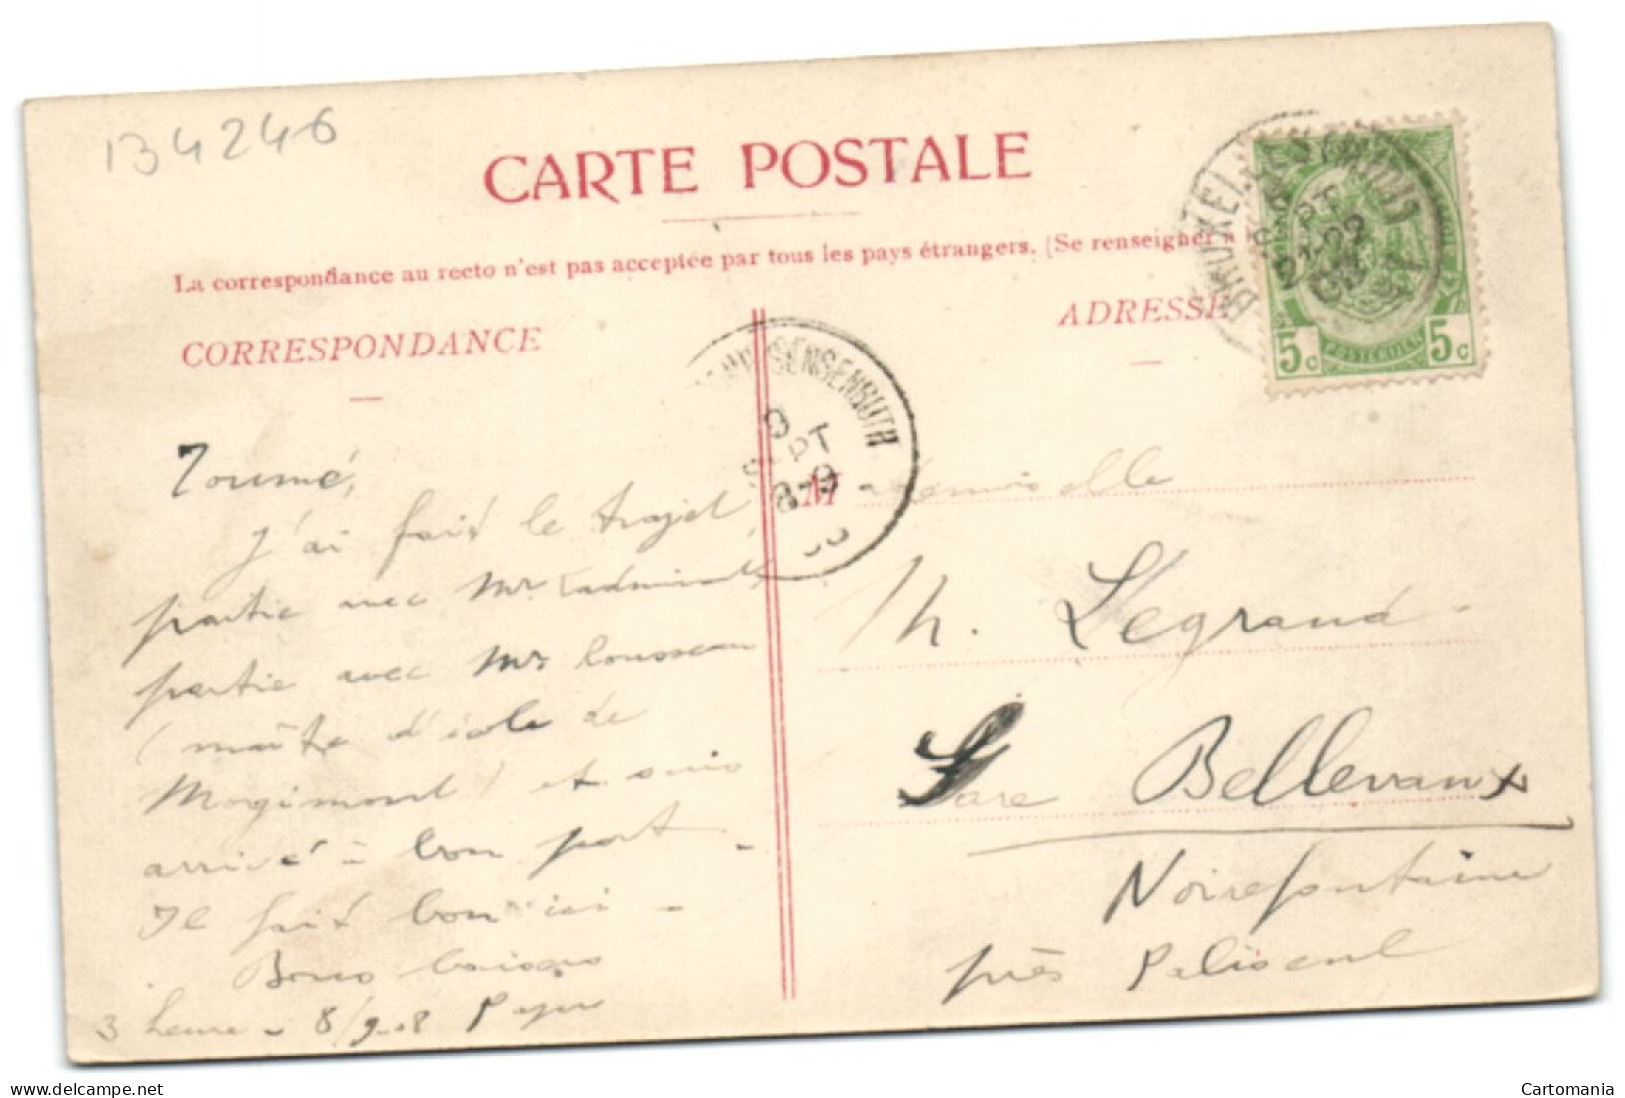 134246
CARTE POSTALE
La correspondance au recto n'est pas acceptée par tous les pays étrangers. (Se renseigner à
CORRESPONDANCE
ADRESSE
5c POSTERIJEN 5c
SENSENRUTH
9
SEPT
8-9
M ademoiselle
M. Legrand
Gare Bellevaux
Noirefontaine
près Paliseul
J'ai fait le trajet
partie avec Mr
partie avec Mr Rousseau
(maître d'école de
Mogimont) et suis
arrivé à bon port -
Il fait bon ici -
Bons baisers
3 heure - 8/9-08
www.delcampe.net
Cartomania